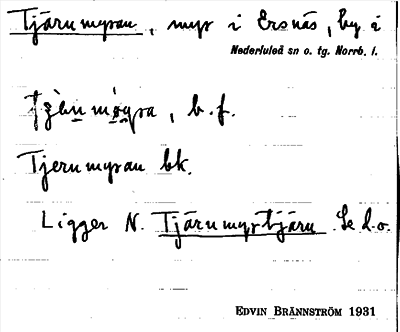 Tjärnmyran, myr i Ersnäs, by i
Nederluleå sn o. tg. Norrb. l.
b. f.
Tjernmyran bk.
Ligger N. Tjärnmyrtjärn. Se d. o.
EDVIN BRÄNNSTRÖM 1931